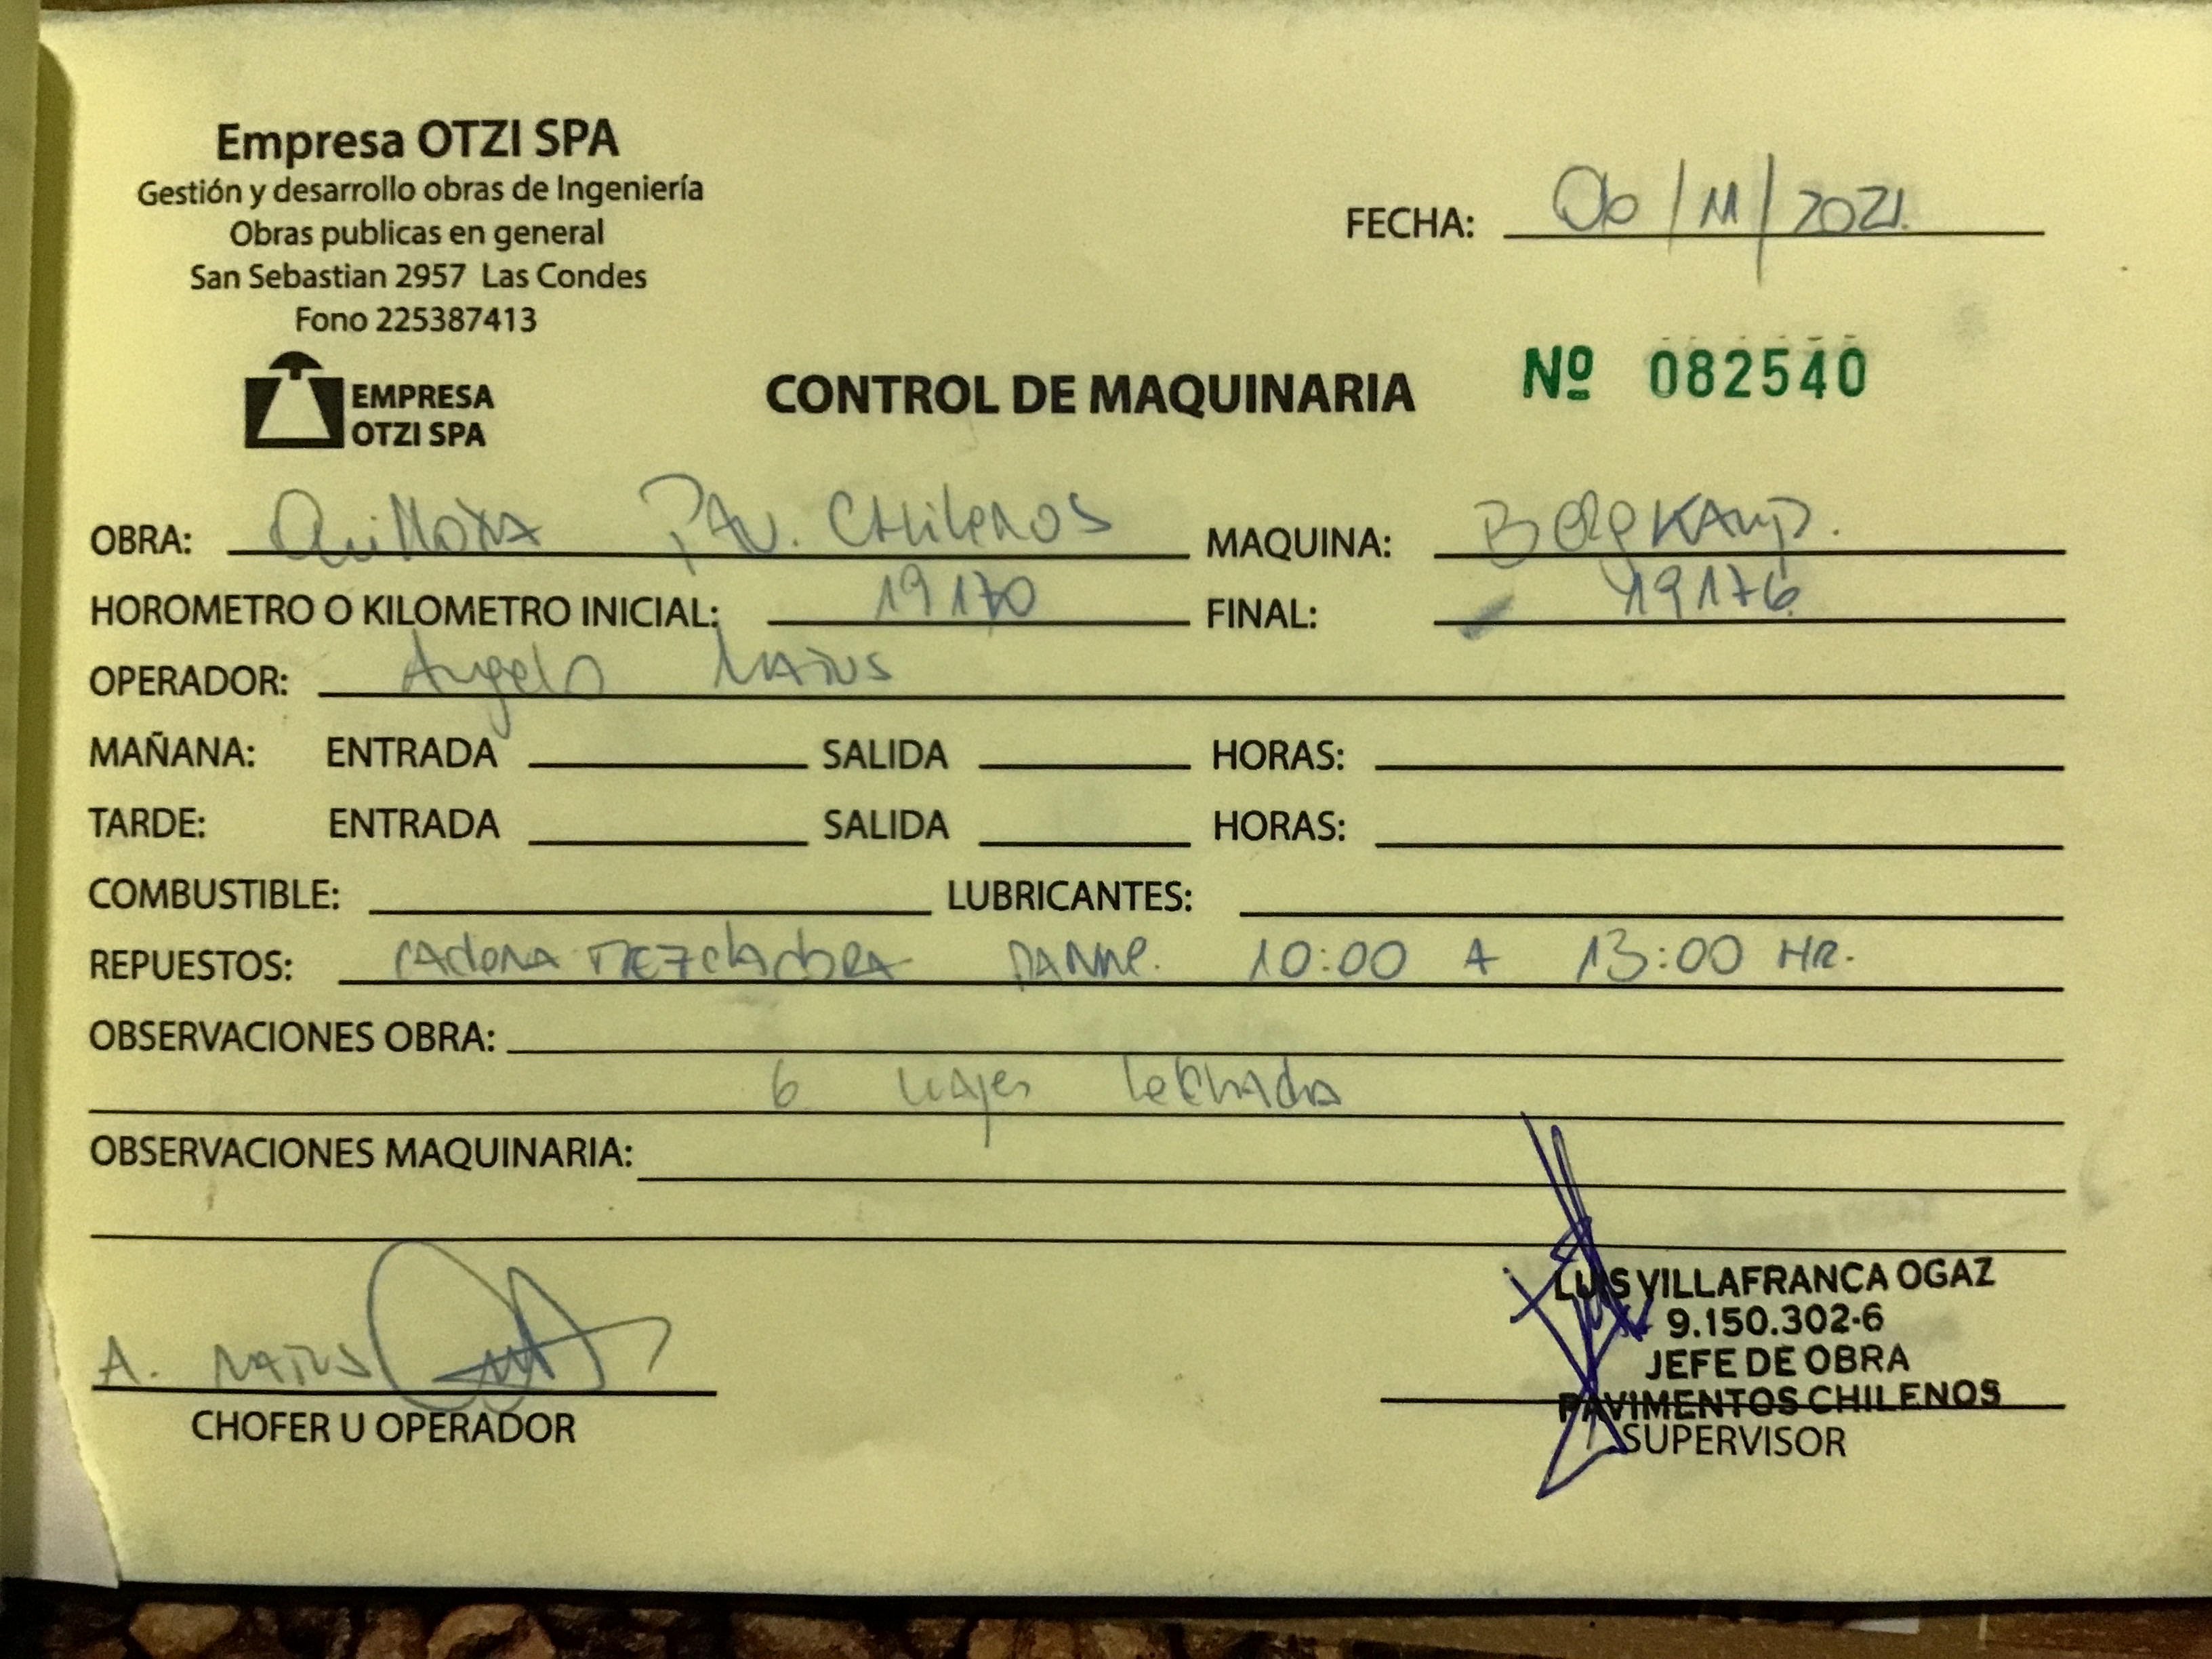 Empresa OTZI SPA
Gestión y desarrollo obras de Ingeniería
Obras publicas en general
San Sebastian 2957 Las Condes
Fono 225387413
FECHA: 06/11/2021
EMPRESA
OTZI SPA
CONTROL DE MAQUINARIA Nº 082540
OBRA: Quillota Pav. Chilenos MAQUINA:
HOROMETRO O KILOMETRO INICIAL: 19170 FINAL: 19176
OPERADOR: Angelo Matus
MAÑANA: ENTRADA SALIDA HORAS:
TARDE: ENTRADA SALIDA HORAS:
COMBUSTIBLE: LUBRICANTES:
REPUESTOS: 10:00 A 13:00 HR.
OBSERVACIONES OBRA:
6 lechada
OBSERVACIONES MAQUINARIA:
A. Matus
CHOFER U OPERADOR
LUIS VILLAFRANCA OGAZ
9.150.302-6
JEFE DE OBRA
PAVIMENTOS CHILENOS
SUPERVISOR